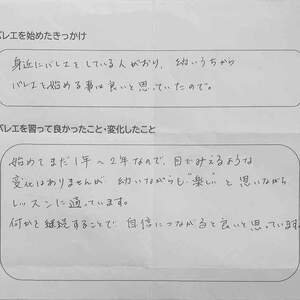 バレエを始めたきっかけ
身近にバレエをしている人がおり、幼いうちから
バレエを始める事は良いと思っていたので。
バレエを習って良かったこと・変化したこと
始めてまだ1年〜2年なので、目でみえるような
変化はありませんが 幼いながらも"楽しい"と思いながら
レッスンに通っています。
何かを継続することで 自信につながると良いと思っています。